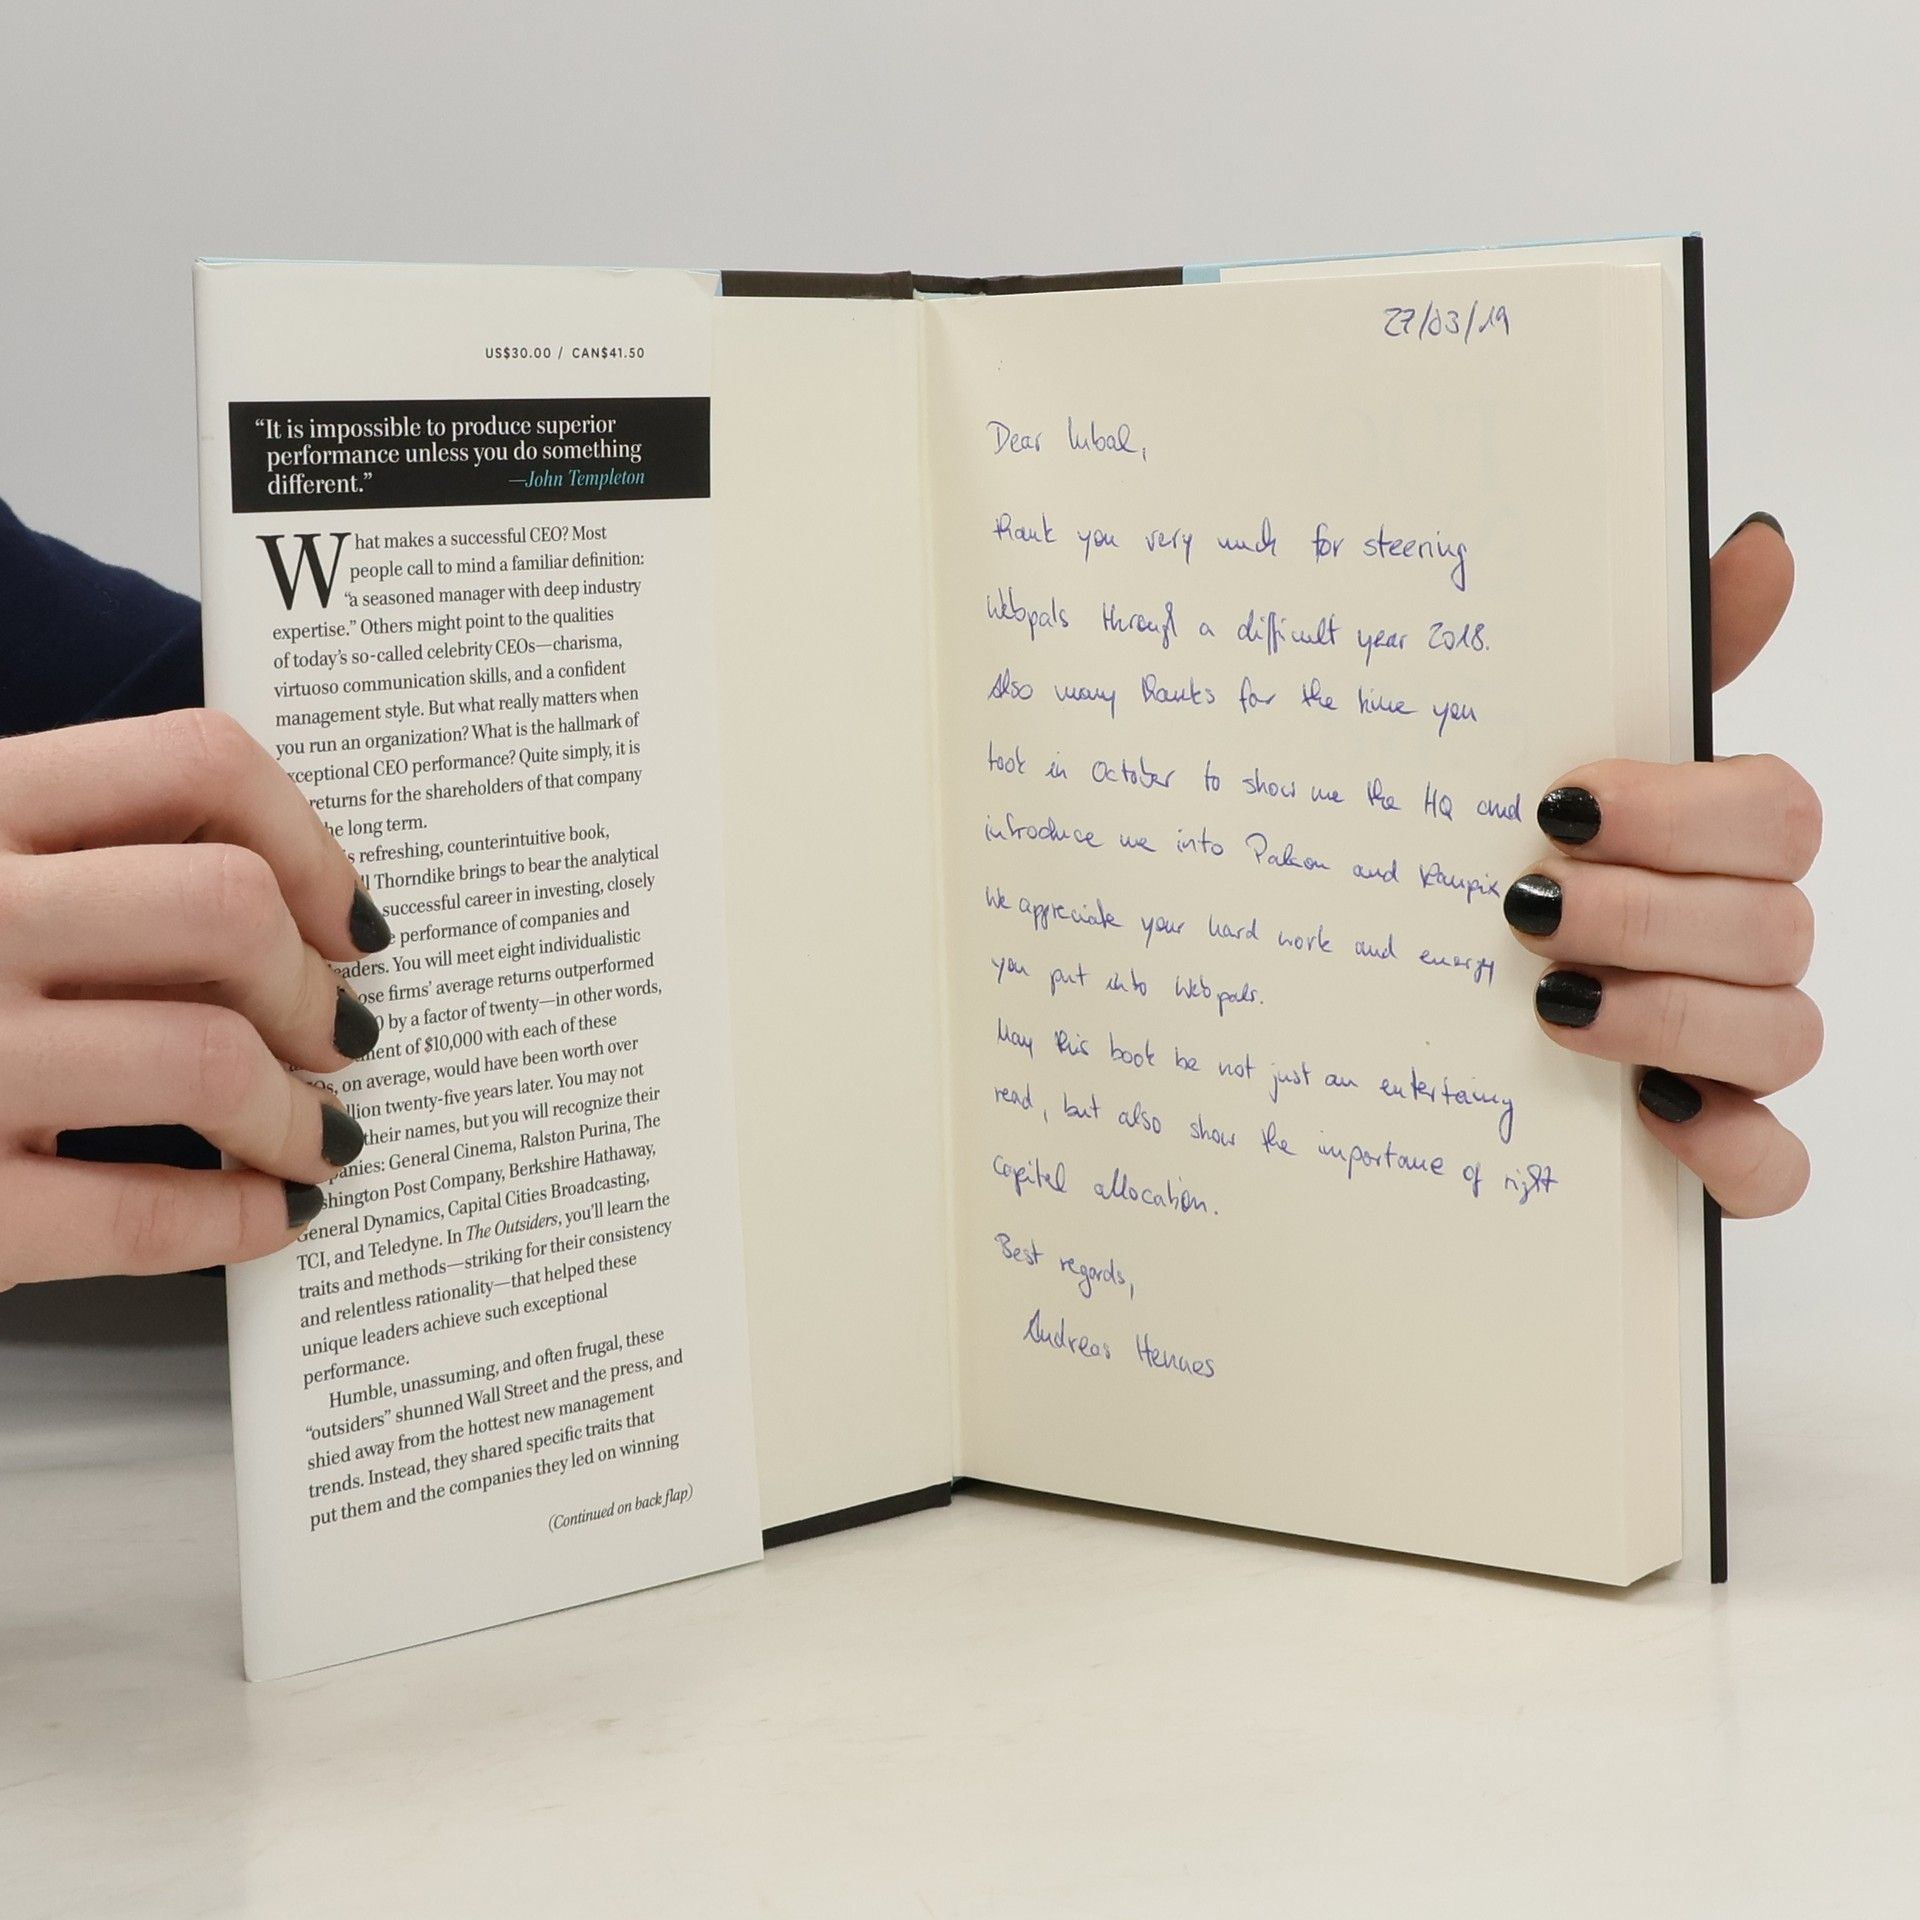 US$30.00 / CAN$41.50
“It is impossible to produce superior
performance unless you do something
different.”
—John Templeton
What makes a successful CEO? Most
people call to mind a familiar definition:
“a seasoned manager with deep industry
expertise.” Others might point to the qualities
of today’s so-called celebrity CEOs—charisma,
virtuoso communication skills, and a confident
management style. But what really matters when
you run an organization? What is the hallmark of
xceptional CEO performance? Quite simply, it is
returns for the shareholders of that company
he long term.
s refreshing, counterintuitive book,
l Thorndike brings to bear the analytical
successful career in investing, closely
e performance of companies and
eaders. You will meet eight individualistic
ose firms’ average returns outperformed
0 by a factor of twenty—in other words,
ment of $10,000 with each of these
Os, on average, would have been worth over
llion twenty-five years later. You may not
their names, but you will recognize their
panies: General Cinema, Ralston Purina, The
shington Post Company, Berkshire Hathaway,
General Dynamics, Capital Cities Broadcasting,
TCI, and Teledyne. In The Outsiders, you’ll learn the
traits and methods—striking for their consistency
and relentless rationality—that helped these
unique leaders achieve such exceptional
performance.
Humble, unassuming, and often frugal, these
“outsiders” shunned Wall Street and the press, and
shied away from the hottest new management
trends. Instead, they shared specific traits that
put them and the companies they led on winning
(Continued on back flap)
27/03/19
Dear Inbal,
thank you very much for steering
Webpals through a difficult year 2018.
Also many thanks for the time you
took in October to show me the HQ and
introduce me into Palcon and
We appreciate your hard work and energy
you put into Webpals.
May this book be not just an entertaing
read, but also show the importance of right
capital allocation.
Best regards,
Andreas Hennes